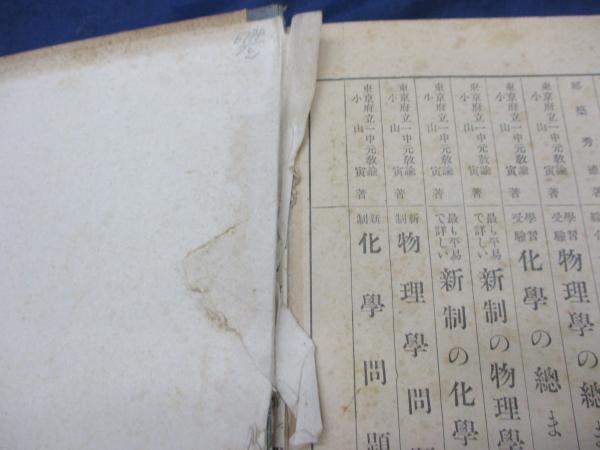 綜合
郡築秀雄著
學習受驗 物理學の總ま
東京府立一中元敎諭 小山寅著
學習受驗 化學の總ま
東京府立一中元敎諭 小山寅著
最も平易で詳しい 新制の物理學
東京府立一中元敎諭 小山寅著
最も平易で詳しい 新制の化學
東京府立一中元敎諭 小山寅著
新制 物理學問
東京府立一中元敎諭 小山寅著
新制 化學問題